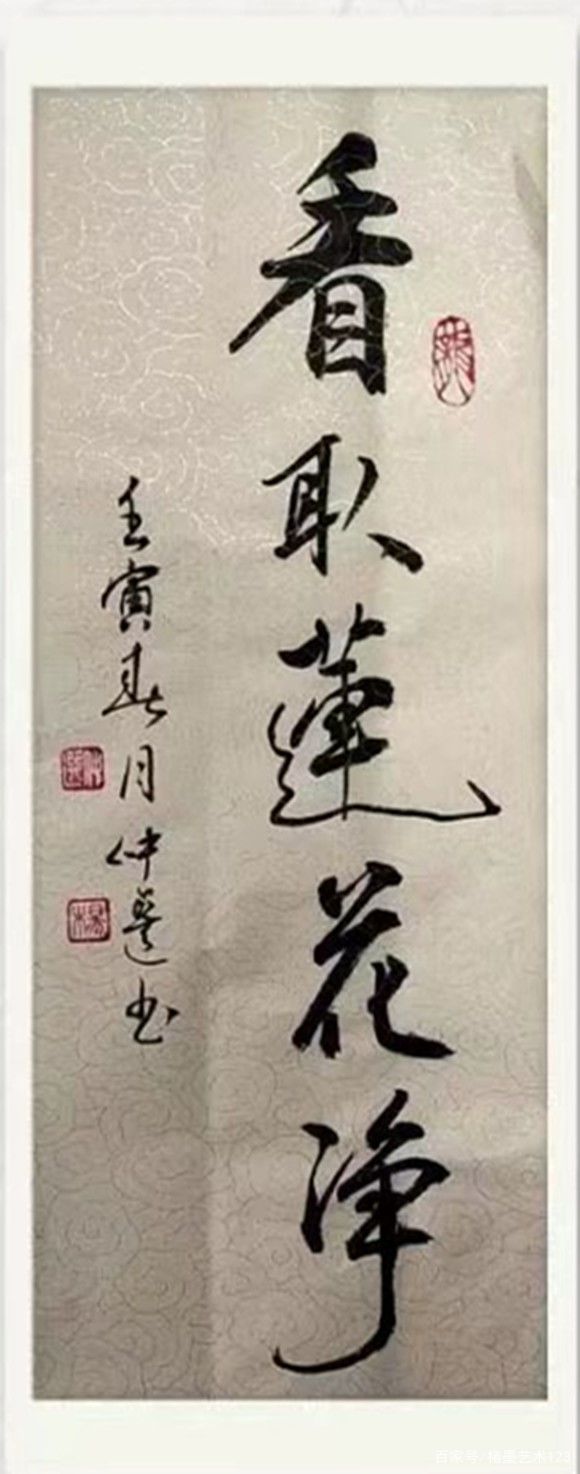 看取蓮花净
壬寅春月仲蓬书
百家号/楮墨艺术123